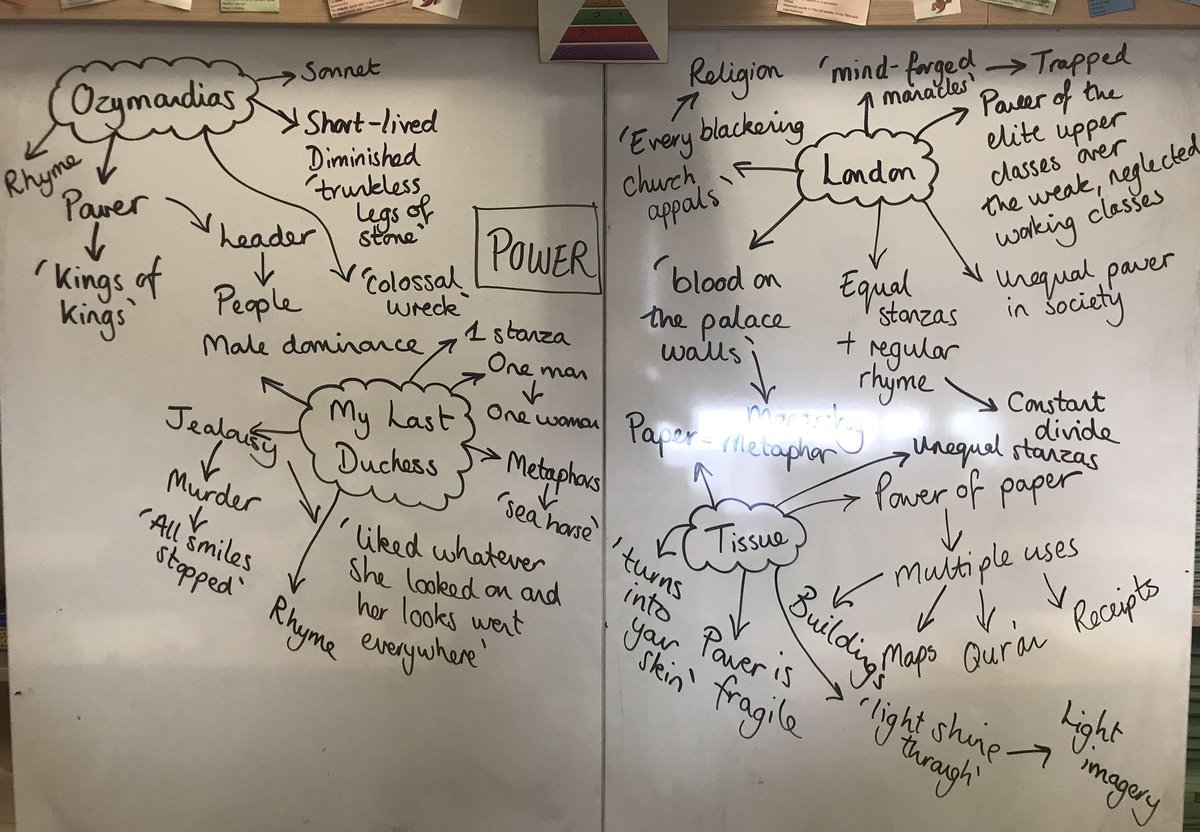 Ozymandias
Sonnet
Short-lived
Diminished
'trunkless
legs of
stone'
Rhyme
Power
'Kings of
kings'
Leader
People
'colossal
wreck'
POWER
My Last
Duchess
Male dominance
1 stanza
One man
One woman
Metaphors
'sea horse'
Jealousy
Murder
'All smiles
stopped'
Rhyme
'liked whatever
she looked on and
her looks went
everywhere'
London
Religion
'Every blackening
church
appals'
'mind-forged
manacles'
Trapped
Power of the
elite upper
classes over
the weak, neglected
working classes
'blood on
the palace
walls'
Equal
stanzas
+ regular
rhyme
Constant
divide
unequal power
in society
Tissue
Paper = Metaphor
unequal stanzas
Power of paper
Multiple uses
Buildings
Maps
Qur'an
Receipts
'turns
into
your
skin'
Power is
fragile
'light shine
through'
Light
imagery